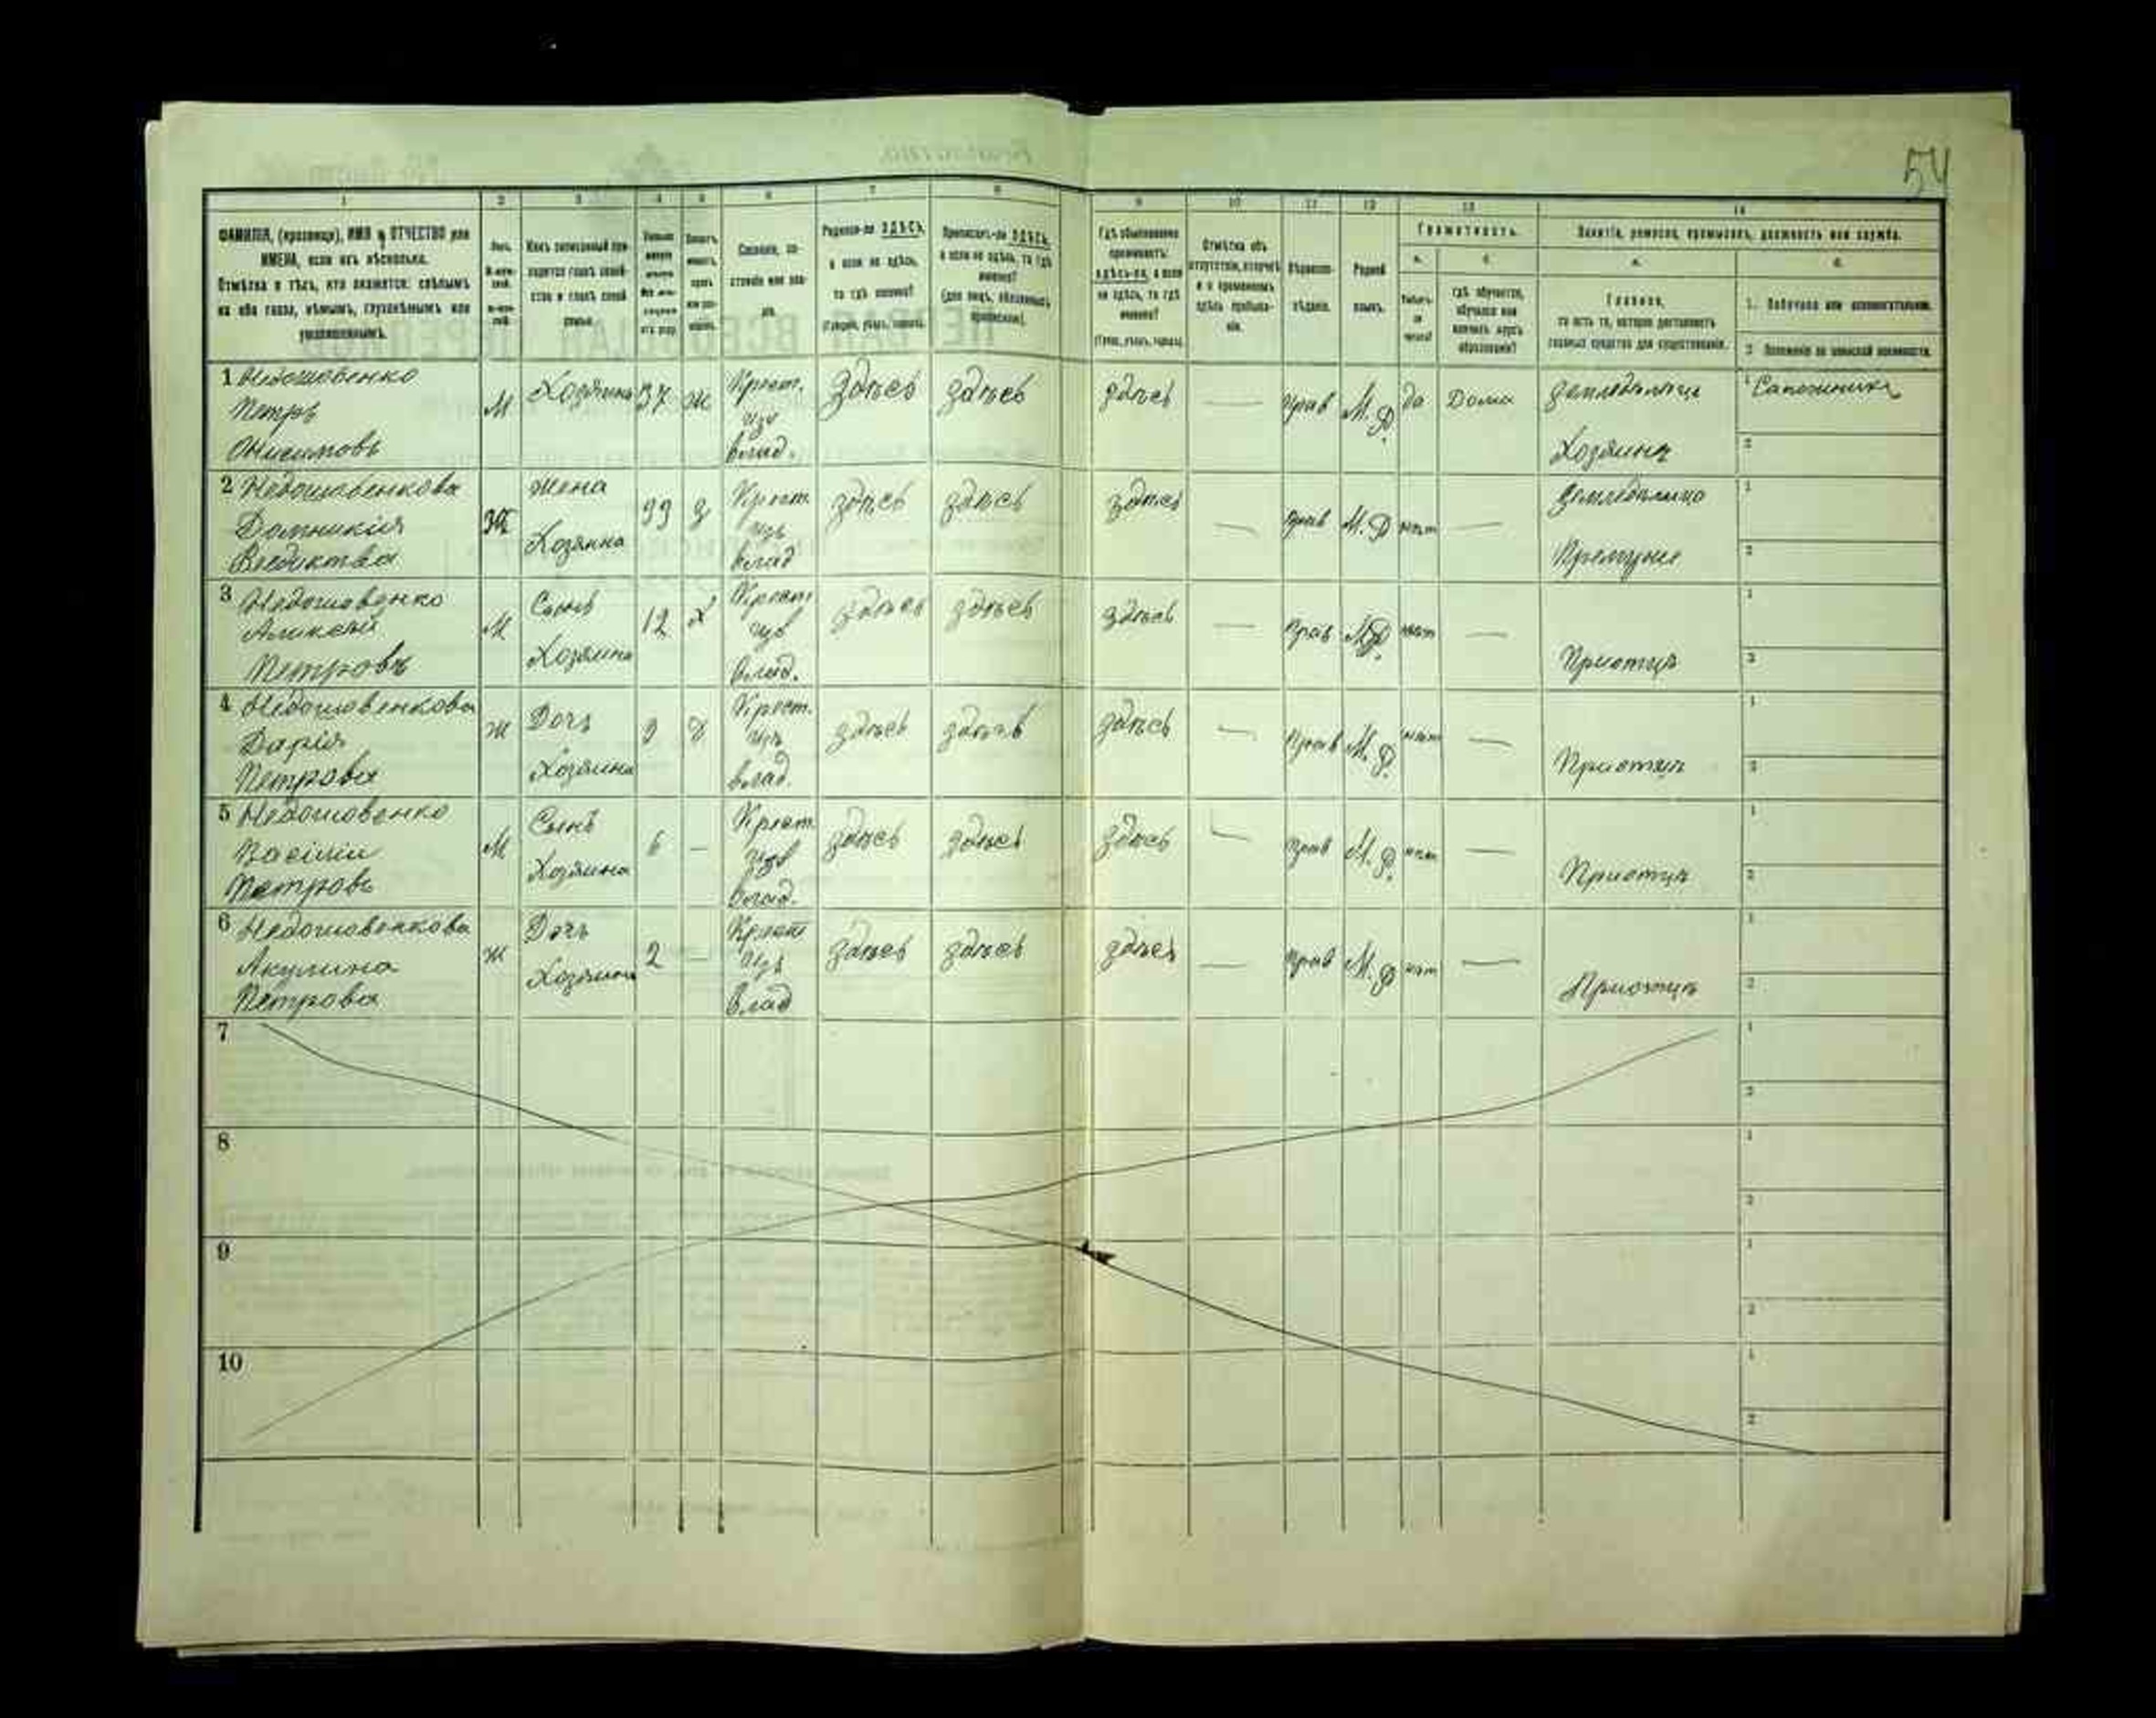 54
1 2 3 4 5 6 7 8 9 10 11 12 13 14
ФАМИЛІЯ, (прозвище), ИМЯ и ОТЧЕСТВО или
ИМЕНА, если ихъ нѣсколько.
Отмѣтка о тѣхъ, кто окажется: слѣпымъ
на оба глаза, нѣмымъ, глухонѣмымъ или
умалишеннымъ.
Полъ.
Какъ записанный при-
ходится главѣ хозяй-
ства и главѣ своей
семьи.
Сословіе, со-
стояніе или зва-
ніе.
Родился-ли ЗДѢСЬ,
а если не здѣсь,
то гдѣ именно?
(Губернія, уѣздъ, городъ).
Приписанъ-ли ЗДѢСЬ,
а если не здѣсь, то гдѣ
именно?
(для лицъ, обязанныхъ
припискою).
Гдѣ обыкновенно
проживаетъ:
здѣсь-ли, а если
не здѣсь, то гдѣ
именно?
(Губ., уѣздъ, городъ).
Отмѣтка объ
отсутствіи, отлучкѣ
и о временномъ
здѣсь пребыва-
ніи.
Вѣроиспо-
вѣданіе.
Родной
языкъ.
Грамотность.
а. б.
Умѣетъ-
ли
читать?
гдѣ обучается,
обучался или
кончилъ курсъ
образованія?
Занятіе, ремесло, промыселъ, должность или служба.
а. б.
Главное,
то есть то, которое доставляетъ
главныя средства для существованія.
1. Побочное или вспомогательное.
2. Положеніе по воинской повинности.
1 Недошовенко М Хозяинъ 37 ж Крест. Здѣсь здѣсь здѣсь — Прав М. Р. да Дома Земледѣлецъ 1 Сапожникъ
Петръ изъ
Онисимовъ влад. Хозяинъ 2
2 Недошовенкова Ж Жена 39 з Крест здѣсь здѣсь здѣсь — Прав М. Р нѣт — Земледѣлица 1
Домникія Хозяина изъ
влад При мужѣ 2
3 Недошовенко М Сынъ 12 х Крест здѣсь здѣсь здѣсь — Прав М. Р. нѣт — 1
Аликсѣй изъ
Петровъ Хозяина влад. При отцѣ 2
4 Недошовенкова ж Дочь 9 Крест. здѣсь здѣсь здѣсь — Прав М. Р. нѣт — 1
Дарія изъ
Петрова Хозяина влад. При отцѣ 2
5 Недошовенко М Сынъ 6 — Крест здѣсь здѣсь здѣсь — Прав М. Р. нѣт — 1
Васілій изъ
Петровъ Хозяина влад. При отцѣ 2
6 Недошовенкова ж Дочь 2 — Крест здѣсь здѣсь здѣсь — Прав М. Р нѣт — 1
Акулина Хозяина изъ
Петрова влад При отцѣ 2
7 1
2
8 1
2
9 1
2
10 1
2